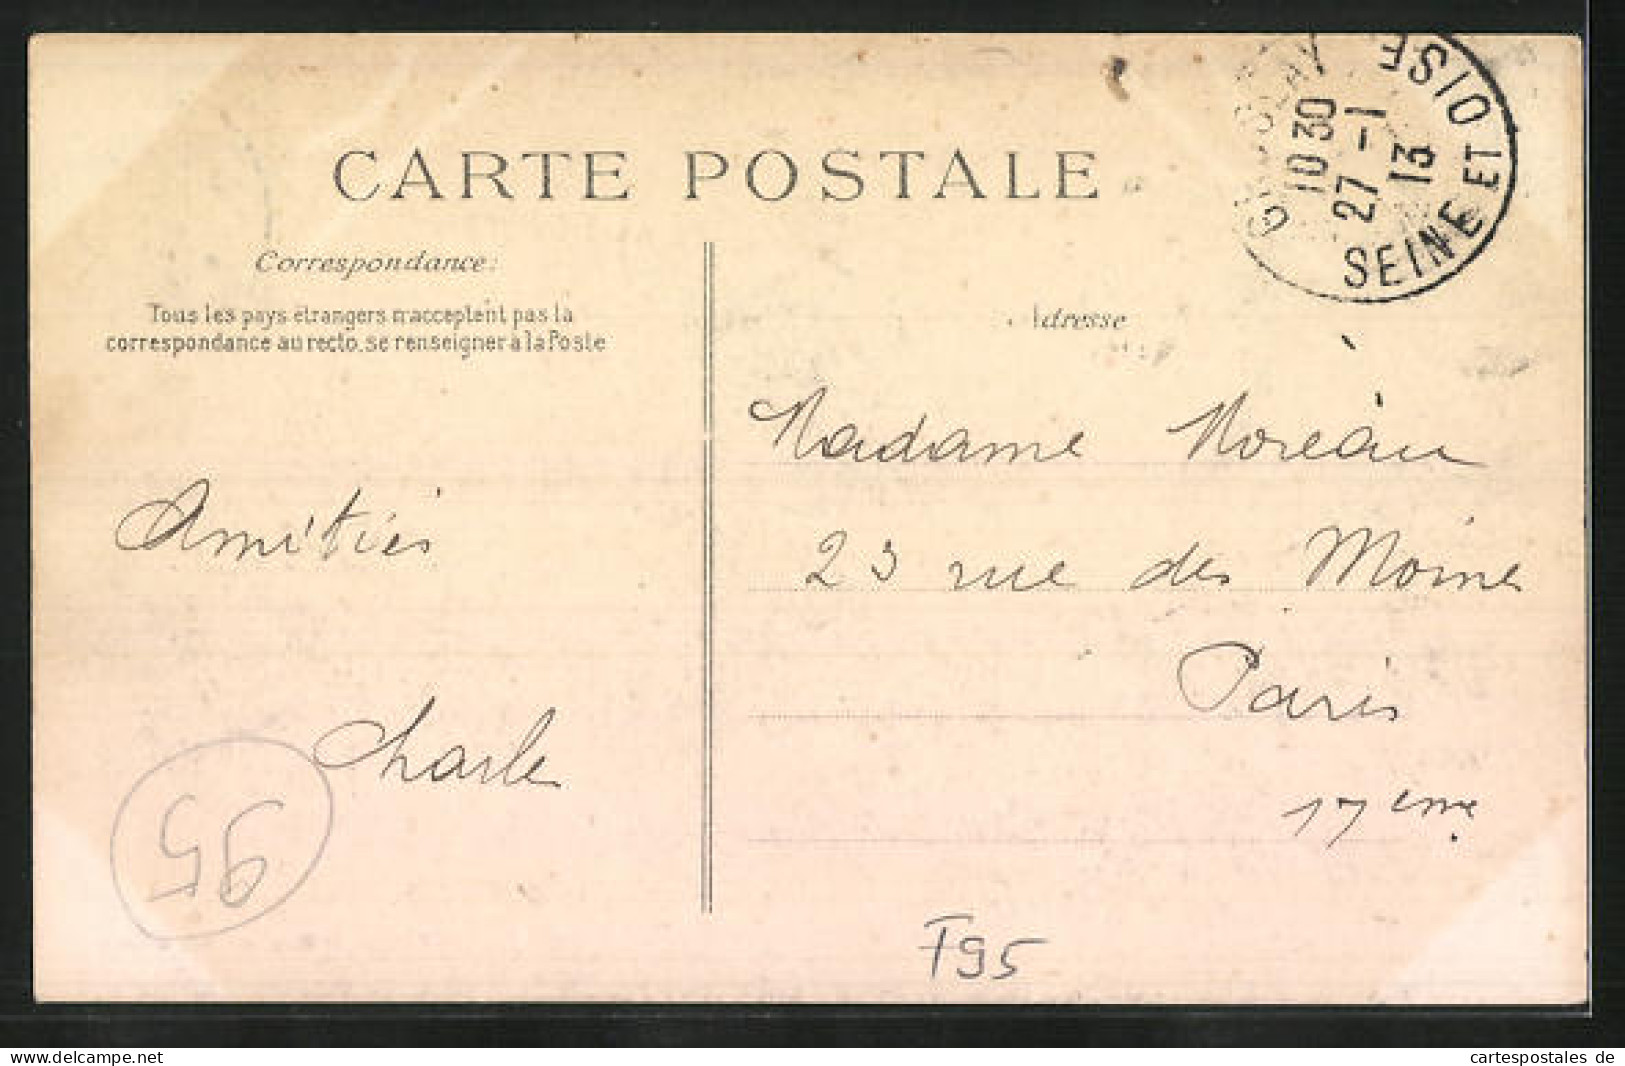 CARTE POSTALE
Correspondance:
Tous les pays étrangers n'acceptent pas la
correspondance au recto, se renseigner à la Poste
Adresse
10 30
27 - 1
13
SEINE ET OISE
Madame Moreau
23 rue des Moines
Paris
17eme
Amitiés
Charles
95
F95
delcampe.net
cartespostales de